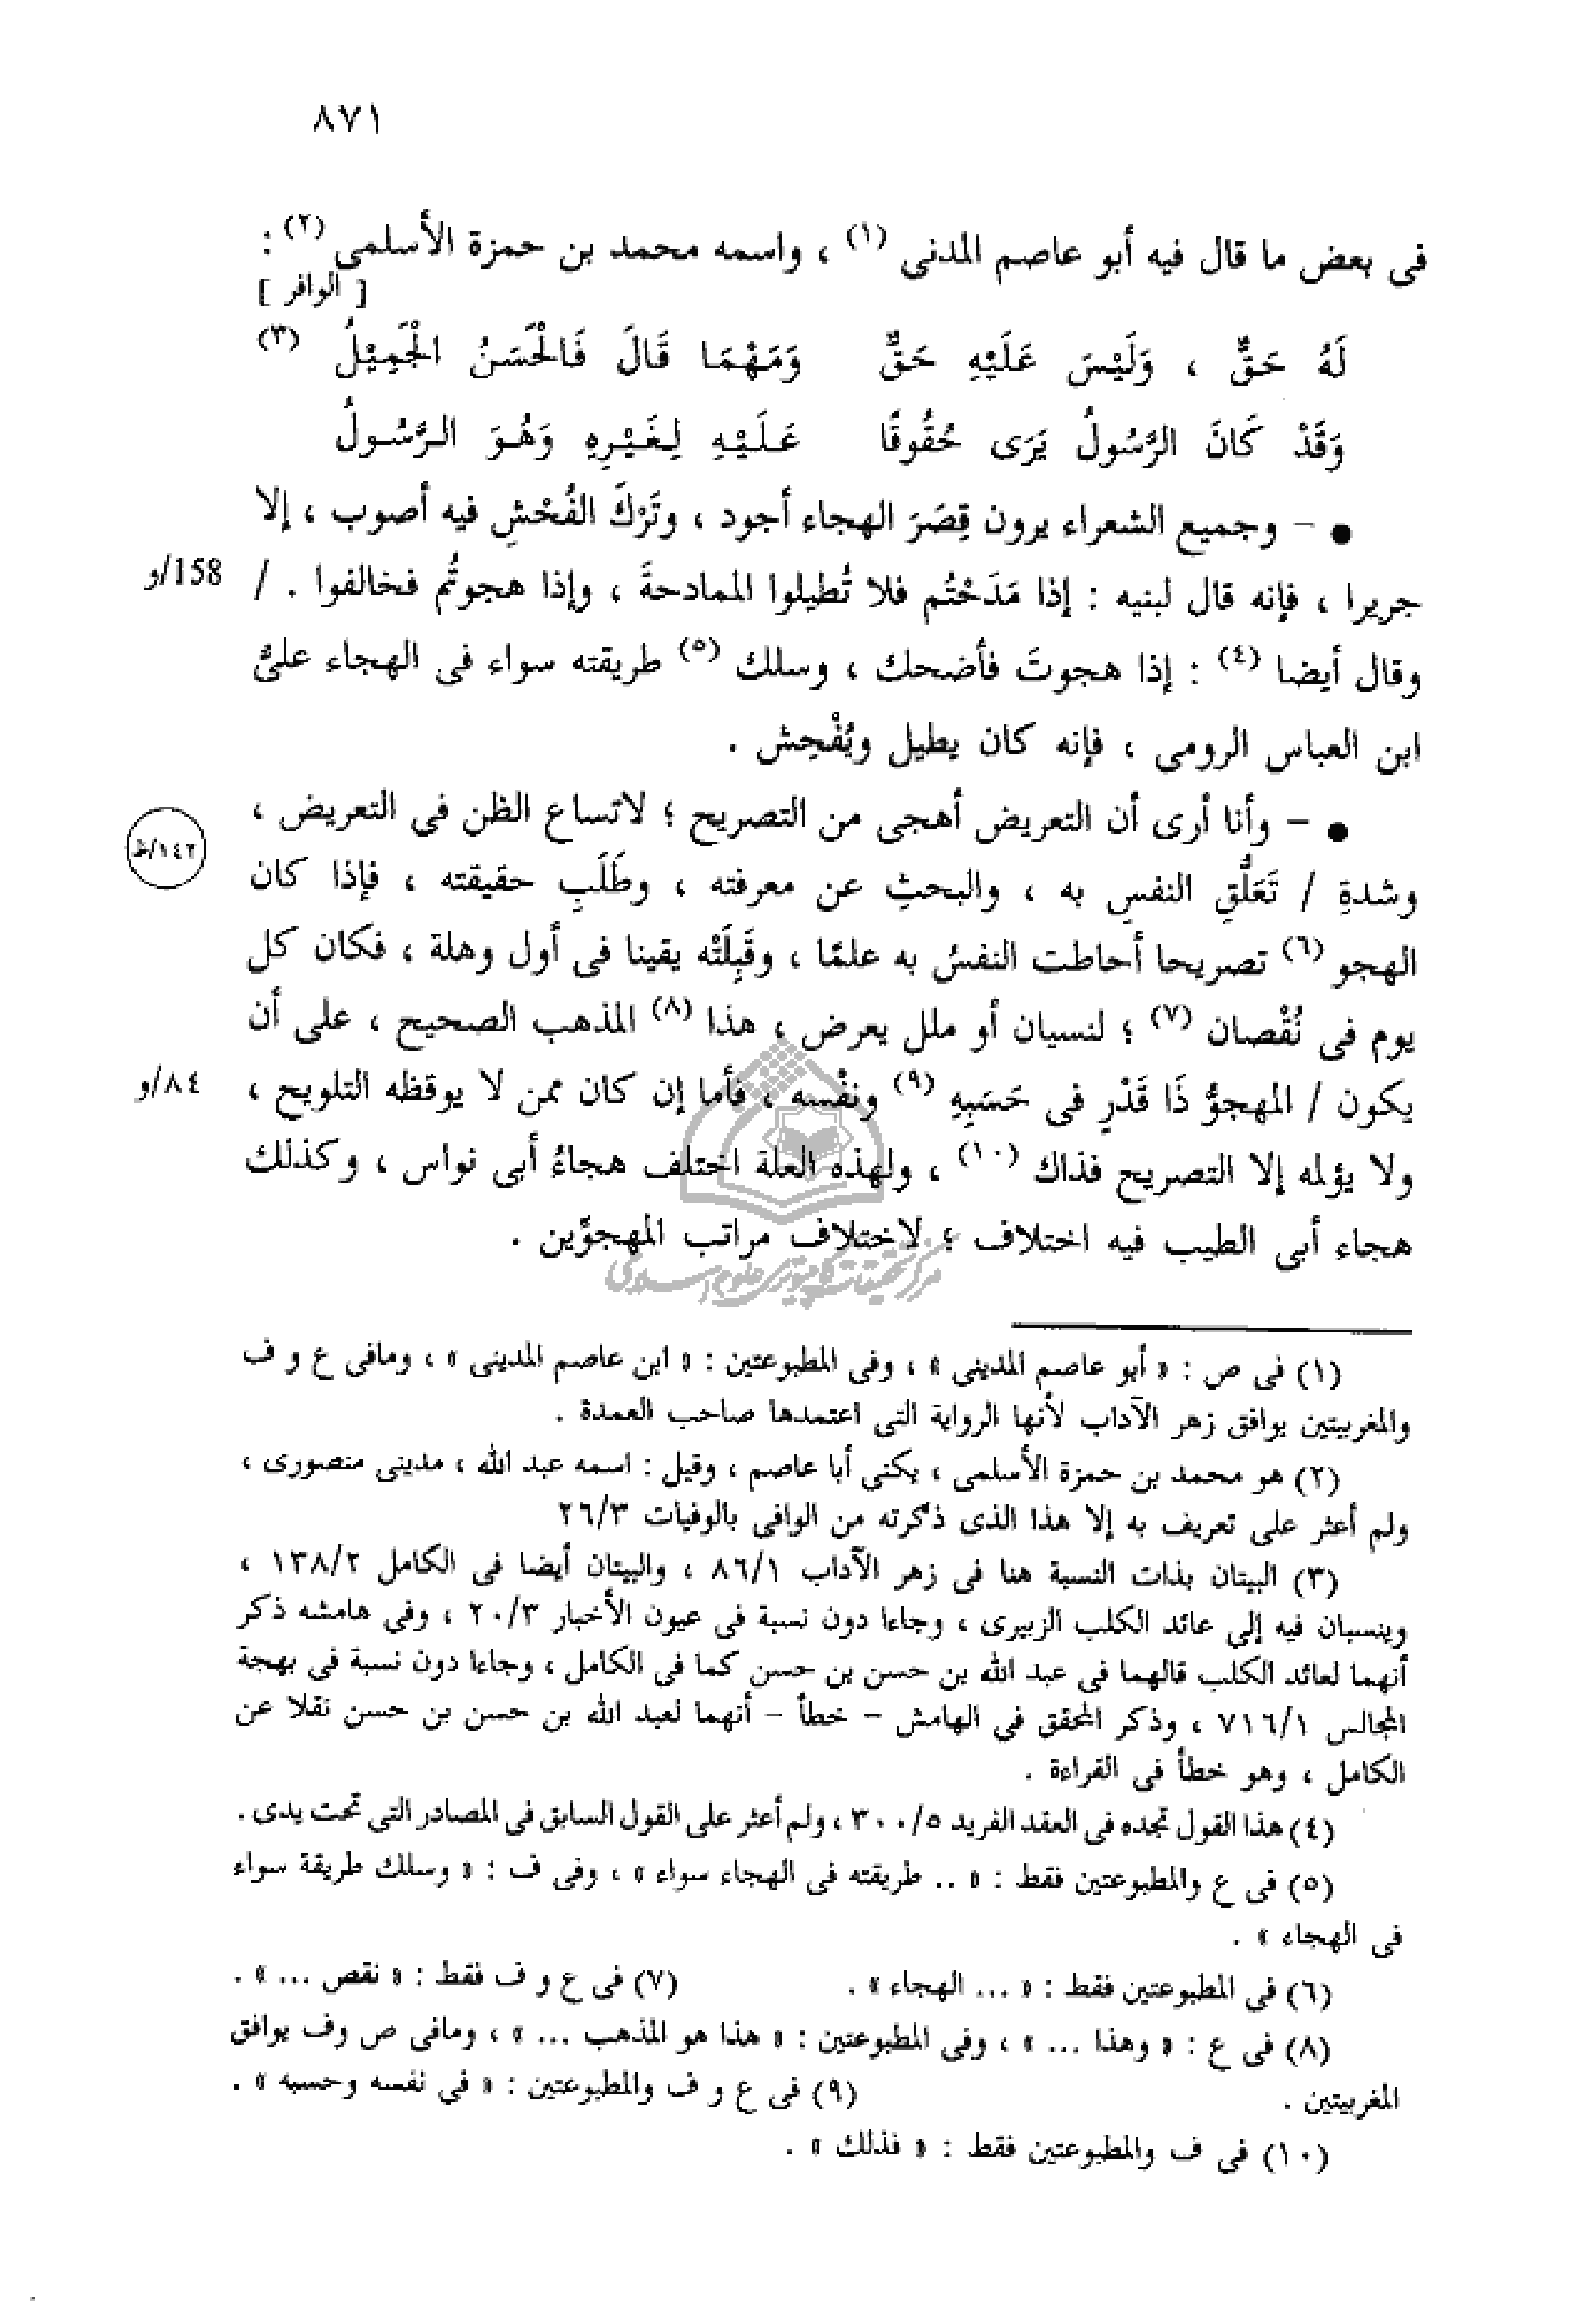 ٨٧١
فى بعض ما قال فيه أبو عاصم المدنى (١) ، واسمه محمد بن حمزة الأسلمى (٢) :
[ الوافر ]
لَهُ حَقٌّ ، وَلَيْسَ عَلَيْهِ حَقٌّ وَمَهْمَا قَالَ فَالْحَسَنُ الْجَمِيْلُ (٣)
وَقَدْ كَانَ الرَّسُولُ يَرَى حُقُوقًا عَلَيْهِ لِغَيْرِهِ وَهُوَ الرَّسُولُ
● – وجميع الشعراء يرون قِصَرَ الهجاء أجود ، وتَرْكَ الفُحْشِ فيه أصوب ، إلا
جريرا ، فإنه قال لبنيه : إذا مَدَحْتُم فلا تُطيلوا الممادحةَ ، وإذا هجوتُم فخالفوا . / 158/و
وقال أيضا (٤) : إذا هجوتَ فأضحك ، وسلك (٥) طريقته سواء فى الهجاء علىُّ
ابن العباس الرومى ، فإنه كان يطيل ويُفْحِش .
● – وأنا أرى أن التعريض أهجى من التصريح ؛ لاتساع الظن فى التعريض ،
١٤٢/ظ
وشدةِ / تَعَلُّقِ النفسِ به ، والبحثِ عن معرفته ، وطَلَبِ حقيقته ، فإذا كان
الهجو (٦) تصريحا أحاطت النفسُ به علمًا ، وقَبِلَتْه يقينا فى أول وهلة ، فكان كل
يوم فى نُقْصان (٧) ؛ لنسيان أو ملل يعرض ، هذا (٨) المذهب الصحيح ، على أن
يكون / المهجوُّ ذَا قَدْرٍ فى حَسَبِهِ (٩) ونفْسه ، فأما إن كان ممن لا يوقظه التلويح ، ٨٤/و
ولا يؤلمه إلا التصريح فذاك (١٠) ، ولهذه العلة اختلف هجاءُ أبى نواس ، وكذلك
هجاء أبى الطيب فيه اختلاف ؛ لاختلاف مراتب المهجوِّين .
مركز تحقيقات كامپيوترى علوم اسلامى
(١) فى ص : « أبو عاصم المدينى » ، وفى المطبوعتين : « ابن عاصم المدينى » ، ومافى ع و ف
والمغربيتين يوافق زهر الآداب لأنها الرواية التى اعتمدها صاحب العمدة .
(٢) هو محمد بن حمزة الأسلمى ، يكنى أبا عاصم ، وقيل : اسمه عبد الله ، مدينى منصورى ،
ولم أعثر على تعريف به إلا هذا الذى ذكرته من الوافى بالوفيات ٢٦/٣
(٣) البيتان بذات النسبة هنا فى زهر الآداب ٨٦/١ ، والبيتان أيضا فى الكامل ١٣٨/٢ ،
وينسبان فيه إلى عائد الكلب الزبيرى ، وجاءا دون نسبة فى عيون الأخبار ٢٠/٣ ، وفى هامشه ذكر
أنهما لعائد الكلب قالهما فى عبد الله بن حسن بن حسن كما فى الكامل ، وجاءا دون نسبة فى بهجة
المجالس ٧١٦/١ ، وذكر المحقق فى الهامش – خطأ – أنهما لعبد الله بن حسن بن حسن نقلا عن
الكامل ، وهو خطأ فى القراءة .
(٤) هذا القول تجده فى العقد الفريد ٣٠٠/٥ ، ولم أعثر على القول السابق فى المصادر التى تحت يدى .
(٥) فى ع والمطبوعتين فقط : « .. طريقته فى الهجاء سواء » ، وفى ف : « وسلك طريقة سواء
فى الهجاء » .
(٦) فى المطبوعتين فقط : « ... الهجاء » . (٧) فى ع و ف فقط : « نقص ... » .
(٨) فى ع : « وهذا ... » ، وفى المطبوعتين : « هذا هو المذهب ... » ، ومافى ص وف يوافق
المغربيتين . (٩) فى ع و ف والمطبوعتين : « فى نفسه وحسبه » .
(١٠) فى ف والمطبوعتين فقط : « فذلك » .